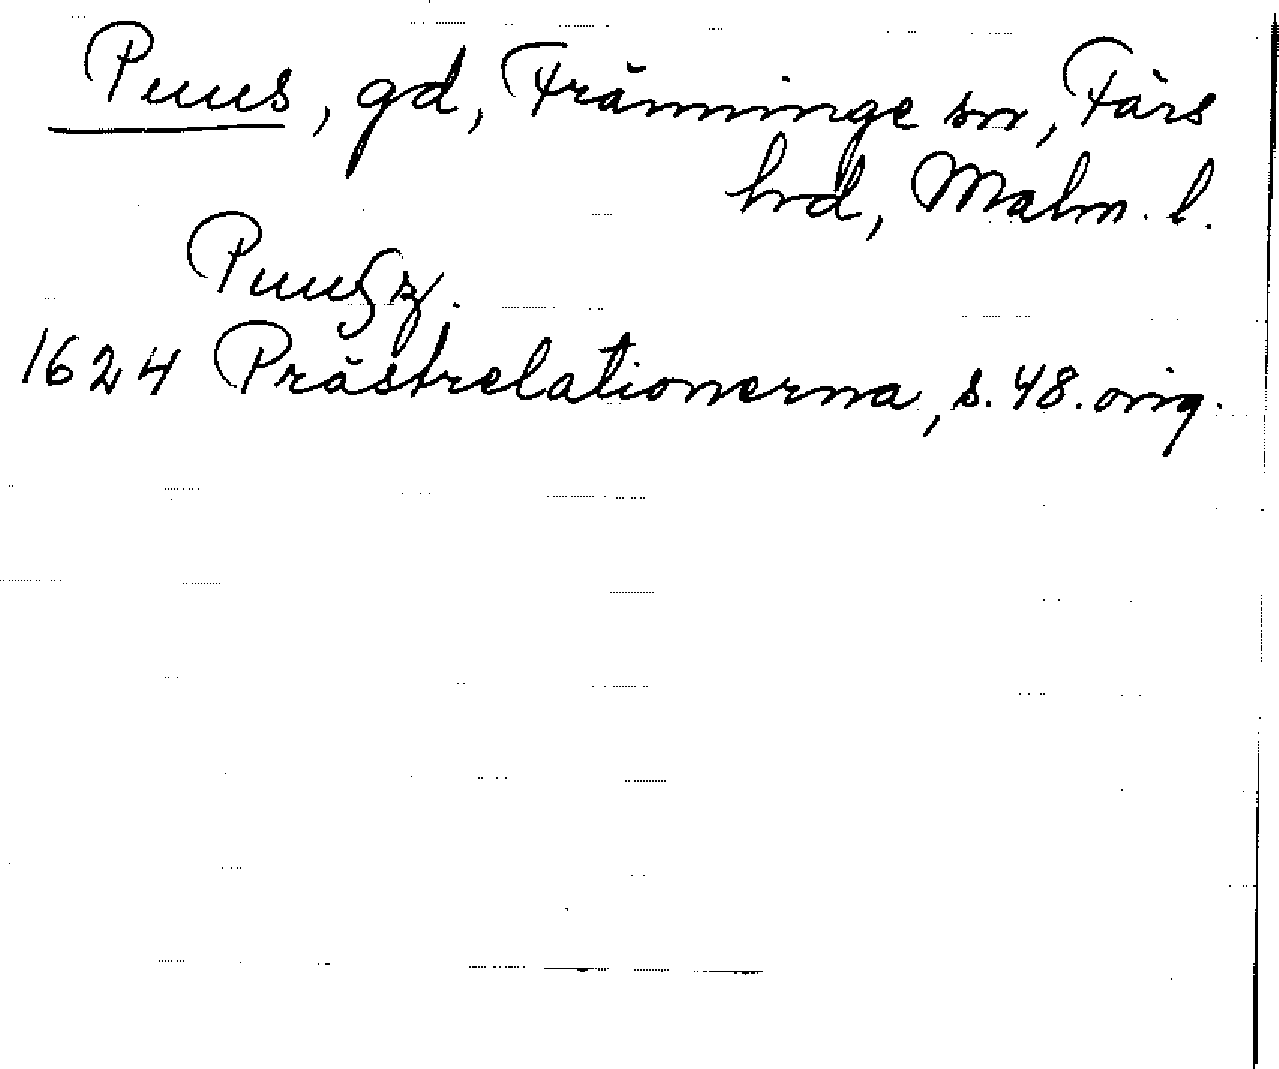 Puus, gd, Fränninge sn, Färs
hrd, Malm. l.
1624 Prästrelationerna, s. 48. orig.